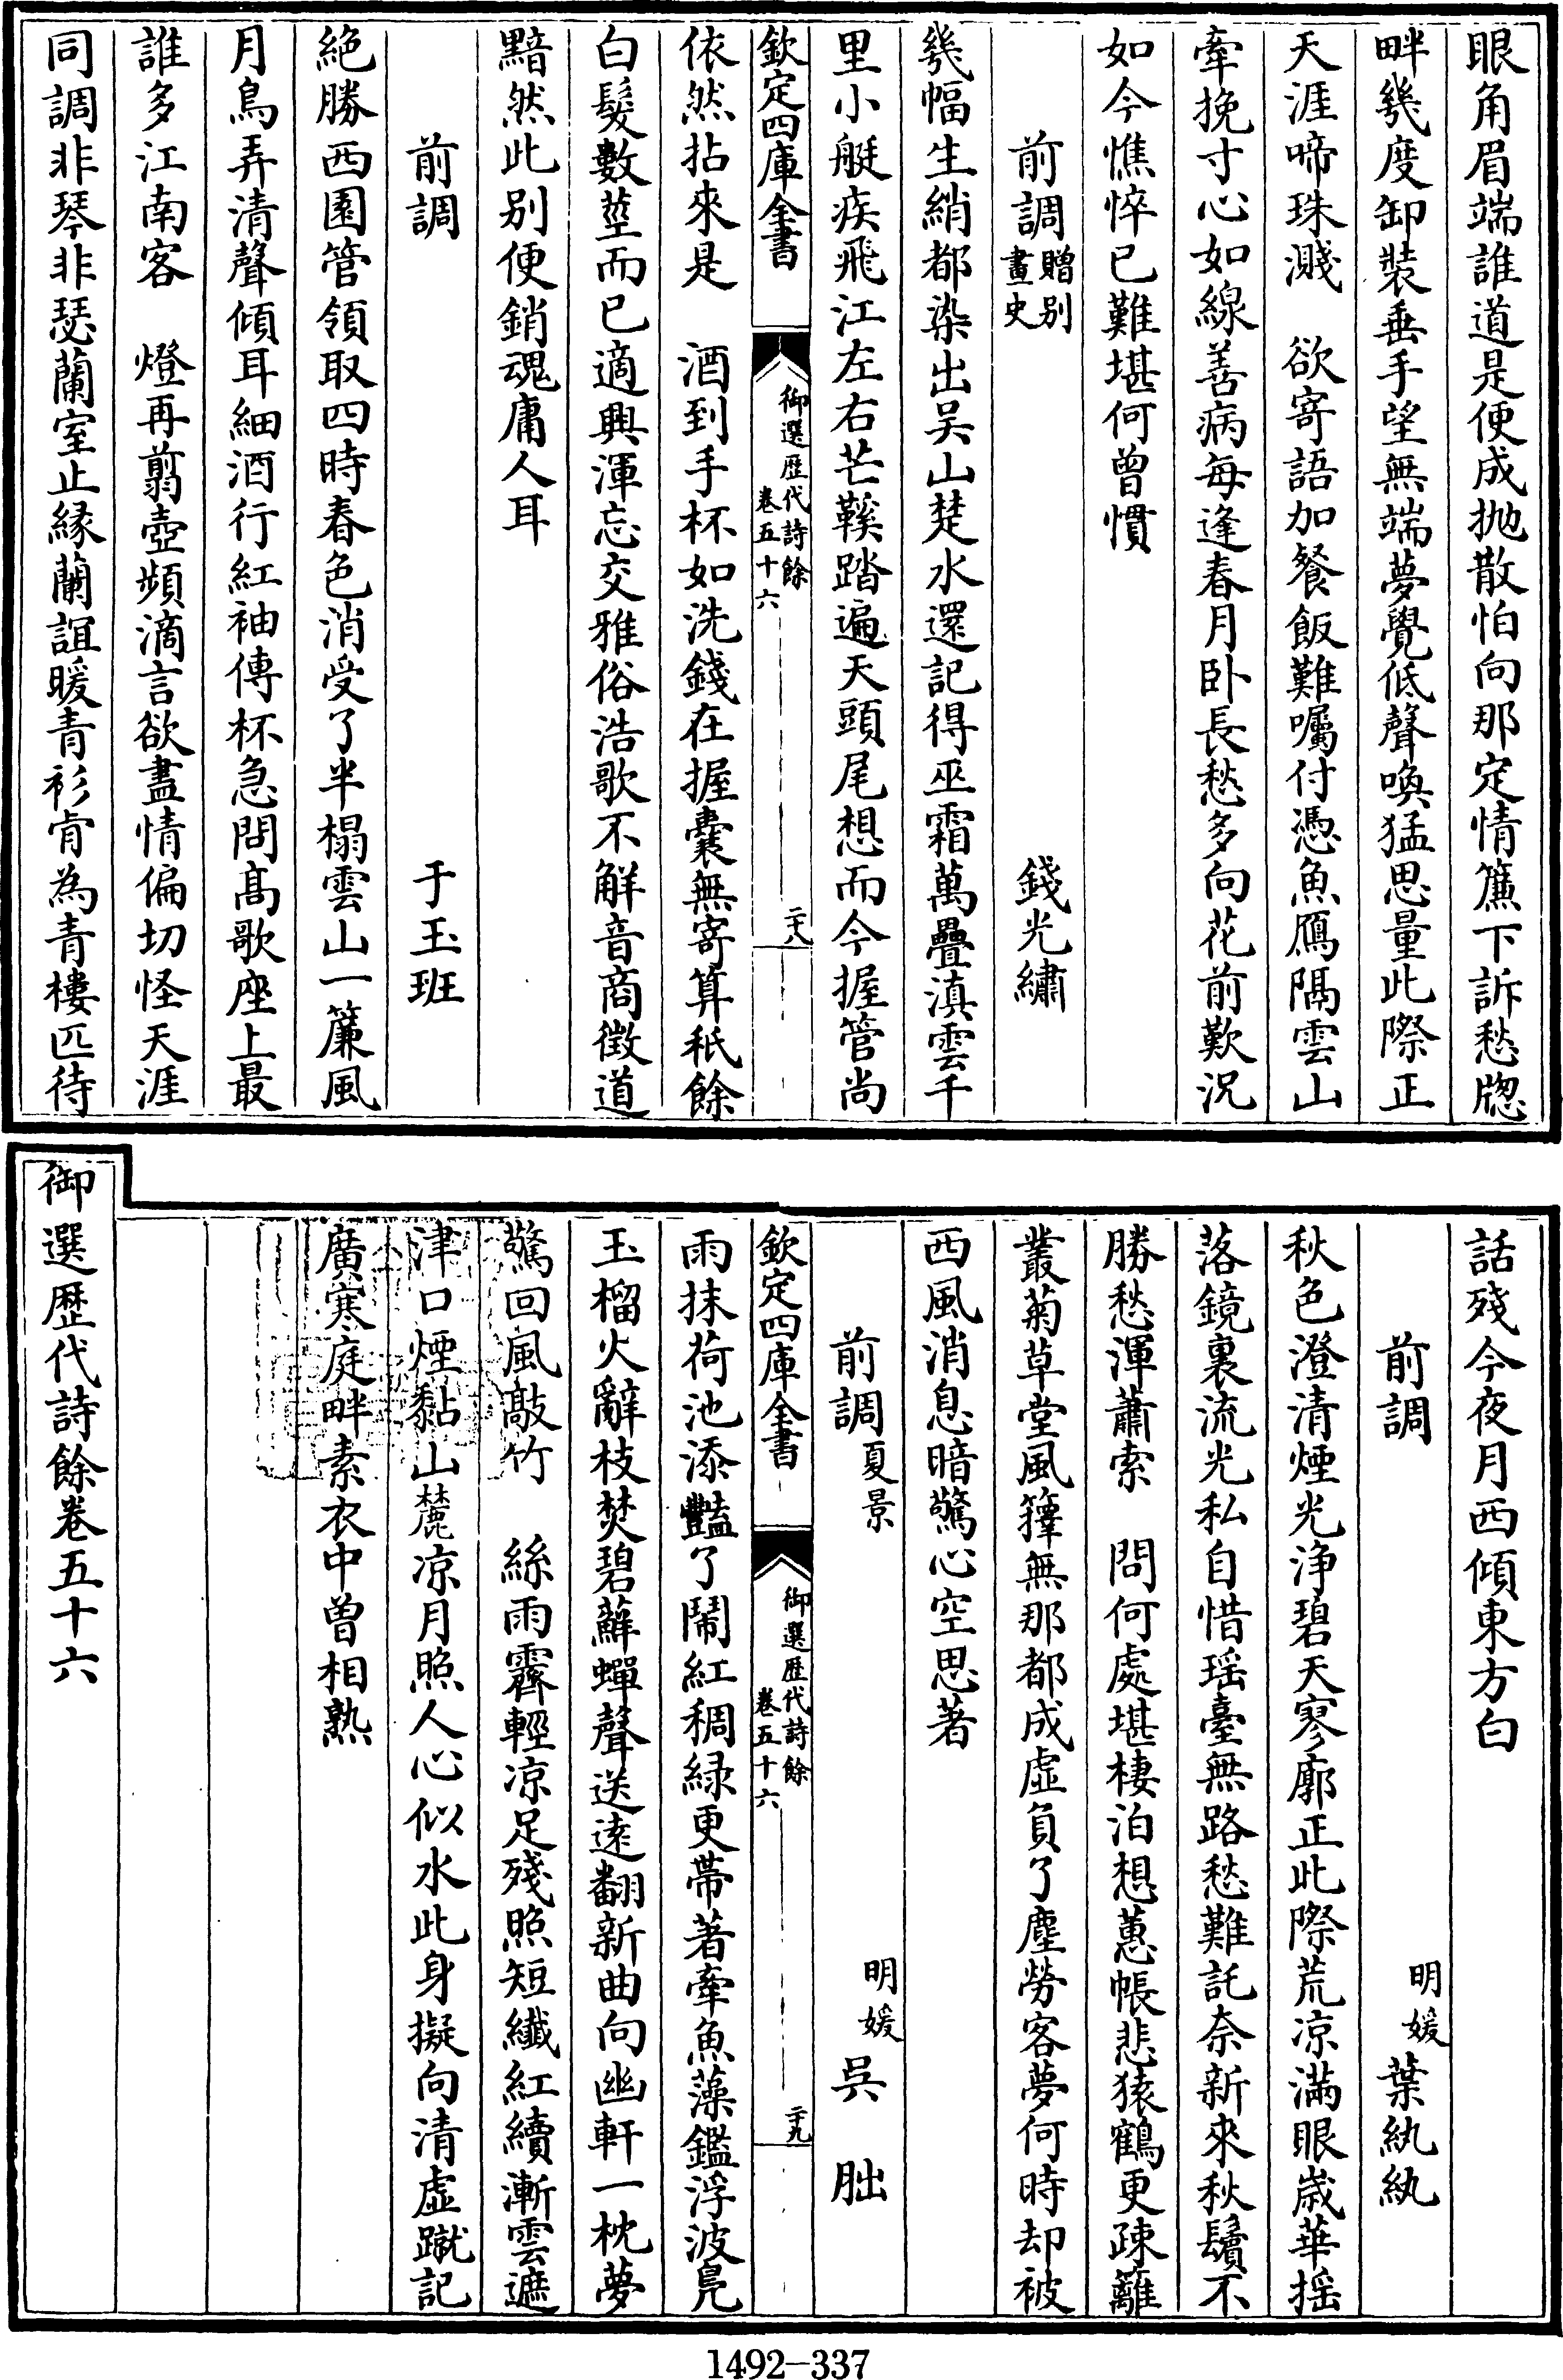 眼角眉端誰道是便成抛散怕向那定情簾下訴愁牕
畔幾度卸裝垂手望無端夢覺低聲喚猛思量此際正
天涯啼珠濺　欲寄語加餐飯難囑付憑魚鴈隔雲山
牽挽寸心如線善病每逢春月卧長愁多向花前歎況
如今憔悴已難堪何曾慣
前調贈别畫史　錢光繡
幾幅生綃都染出吴山楚水還記得巫霜萬疊滇雲千
里小艇疾飛江左右芒鞵踏遍天頭尾想而今握管尚
欽定四庫全書　御選歷代詩餘卷五十六　二十八
依然拈來是　酒到手杯如洗錢在握囊無寄算秖餘
白髮數莖而已適興渾忘交雅俗浩歌不解音商徵道
黯然此别便銷魂庸人耳
前調　于玉班
絶勝西園管領取四時春色消受了半榻雲山一簾風
月鳥弄清聲傾耳細酒行紅袖傳杯急問髙歌座上最
誰多江南客　燈再翦壺頻滴言欲盡情偏切怪天涯
同調非琴非瑟蘭室止緣蘭誼暖青衫肯為青樓匹待
話殘今夜月西傾東方白
前調　明媛葉紈紈
秋色澄清煙光浄碧天寥廓正此際荒凉滿眼歳華揺
落鏡裏流光私自惜瑶臺無路愁難託奈新來秋鬢不
勝愁渾蕭索　問何處堪棲泊想蕙帳悲猿鶴更疎籬
叢菊草堂風籜無那都成虚負了塵勞客夢何時却被
西風消息暗驚心空思著
前調夏景　明媛吳朏
欽定四庫全書　御選歷代詩餘卷五十六　二十九
雨抹荷池添豔了鬧紅稠緑更帶著牽魚藻鑑浮波鳬
玉榴火辭枝焚碧蘚蟬聲送遠翻新曲向幽軒一枕夢
驚回風敲竹　絲雨霽輕凉足殘照短纎紅續漸雲遮
津口煙黏山麓凉月照人心似水此身擬向清虚蹴記
廣寒庭畔素衣中曾相熟
御選歷代詩餘卷五十六
1492-337